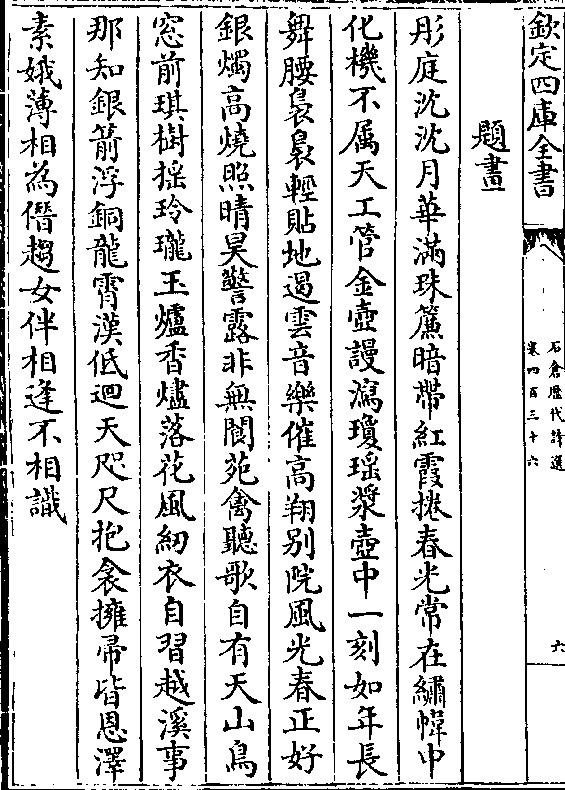 欽定四庫全書
石倉歷代詩選
卷四百三十六
六
題畫
彤庭沈沈月華滿珠簾暗帶紅霞捲春光常在繡幃中
化機不属天工管金壺謾瀉瓊瑶漿壺中一刻如年長
舞腰裊裊輕貼地遏雲音樂催高翔别院風光春正好
銀燭高燒照晴昊警露非無閬苑禽聽歌自有天山鳥
窓前琪樹揺玲瓏玉爐香燼落花風紉衣自習越溪事
那知銀箭浮銅龍霄漢低迴天咫尺抱衾擁帚皆恩澤
素娥薄相為僭趨女伴相逢不相識